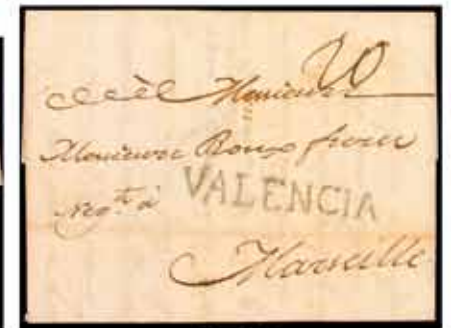 20
Monsieur
Monsieur Roux freres
Neg.t à VALENCIA
Marseille